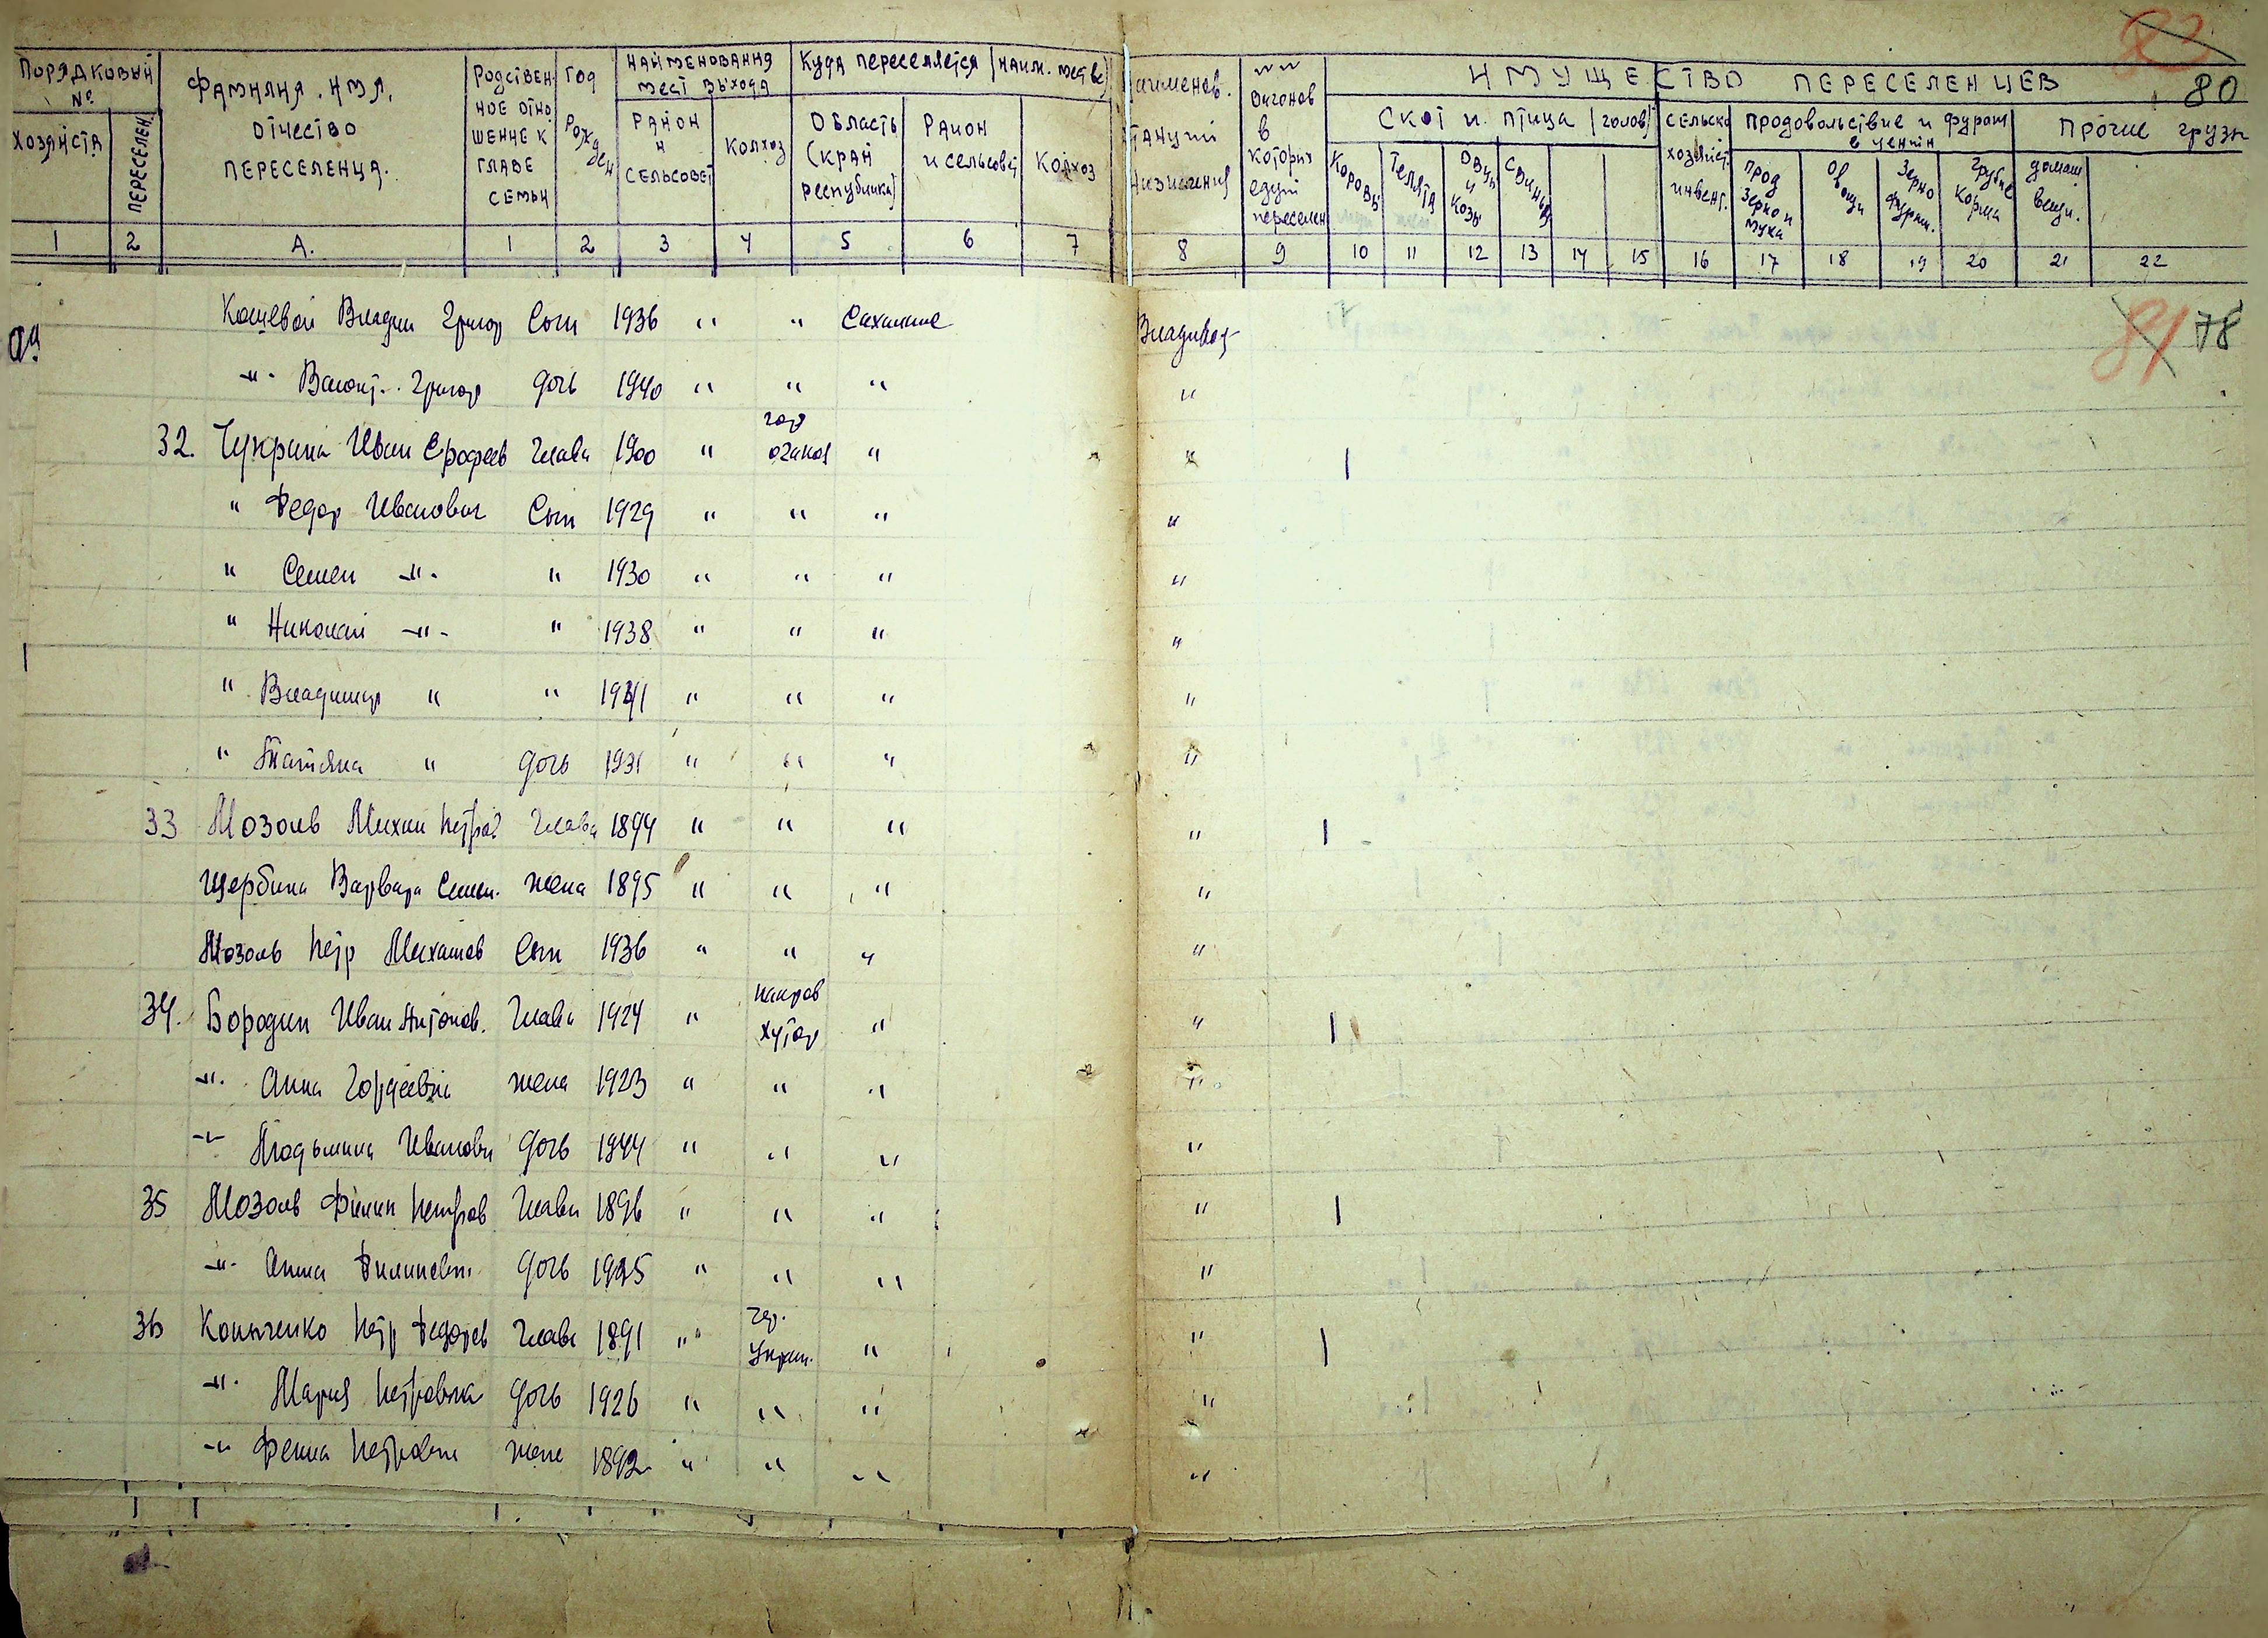 83
80
Порядковый №
Фамилия. Имя, отчество переселенца.
Родственное отношение к главе семьи
Год рожден
Наименования мест выхода
Куда переселяется (наим. местн)
Наименов. станций назначения
№№ вагонов в которых едут переселен
Имущество переселенцев
хозяйств
переселен.
Район и сельсовет
Колхоз
Область (край республика)
Район и сельсовет
Колхоз
Скот и птица (голов)
Коровы
Телята
Овцы и козы
Свиньи
сельско хозяйст. инвент.
Продовольствие и фураж в центн
Прод зерно и мука
Овощи
Зерно фураж.
Грубые корма
Прочие грузы
домаш вещи.
1 2 А. 1 2 3 4 5 6 7 8 9 10 11 12 13 14 15 16 17 18 19 20 21 22
81 78
Кошевой Владим Григор Сын 1936 " " Сахалине Владивос
-"- Валент. Григор дочь 1940 " " " "
32. Чукрина Иван Ерофеев Глава 1900 " гор Очаков " " 1
" Федор Иванович Сын 1929 " " " "
" Семен -"- " 1930 " " " "
" Николай -"- " 1938 " " " "
" Владимир " " 1941 " " " "
" Татьяна " дочь 1931 " " " "
33 Мозоль Михаил Петров Глава 1894 " " " " 1
Щербина Варвара Семен. жена 1895 " " " "
Мозоль Петр Михайлов Сын 1936 " " " "
34. Бородин Иван Антонов. Глава 1924 " хутор " " 1
-"- Анна Гордеевна жена 1923 " " " "
-"- Людьмила Ивановн дочь 1944 " " " "
35 Мозоль Филип Петров Глава 1896 " " " " 1
-"- Анна Филиповн. дочь 1925 " " " "
36 Петр Федоров Глава 1891 " " " 1
-"- Мария Петровна дочь 1926 " " " "
-"- Фенна Петровн жена 1892 " " " "